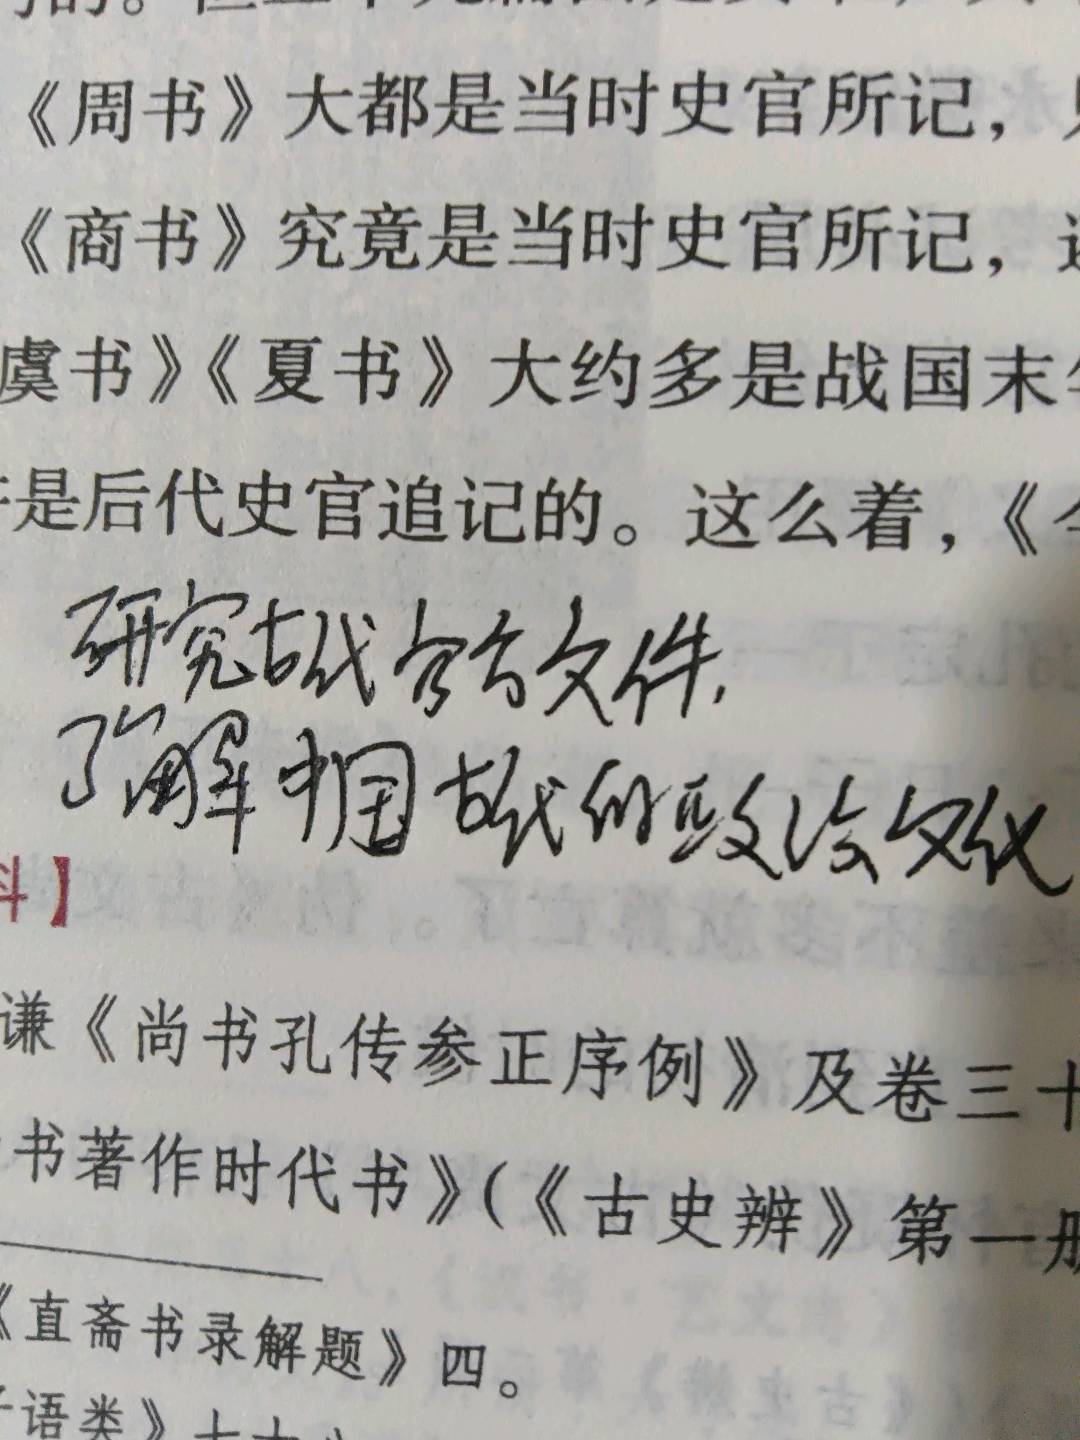 《周书》大都是当时史官所记，
《商书》究竟是当时史官所记，
虞书》《夏书》大约多是战国末
是后代史官追记的。这么着，《
研究古代官方文件，
了解中国古代的政治文化
料】
谦《尚书孔传参正序例》及卷三十
书著作时代书》(《古史辨》第一册
《直斋书录解题》四。
语类》七十